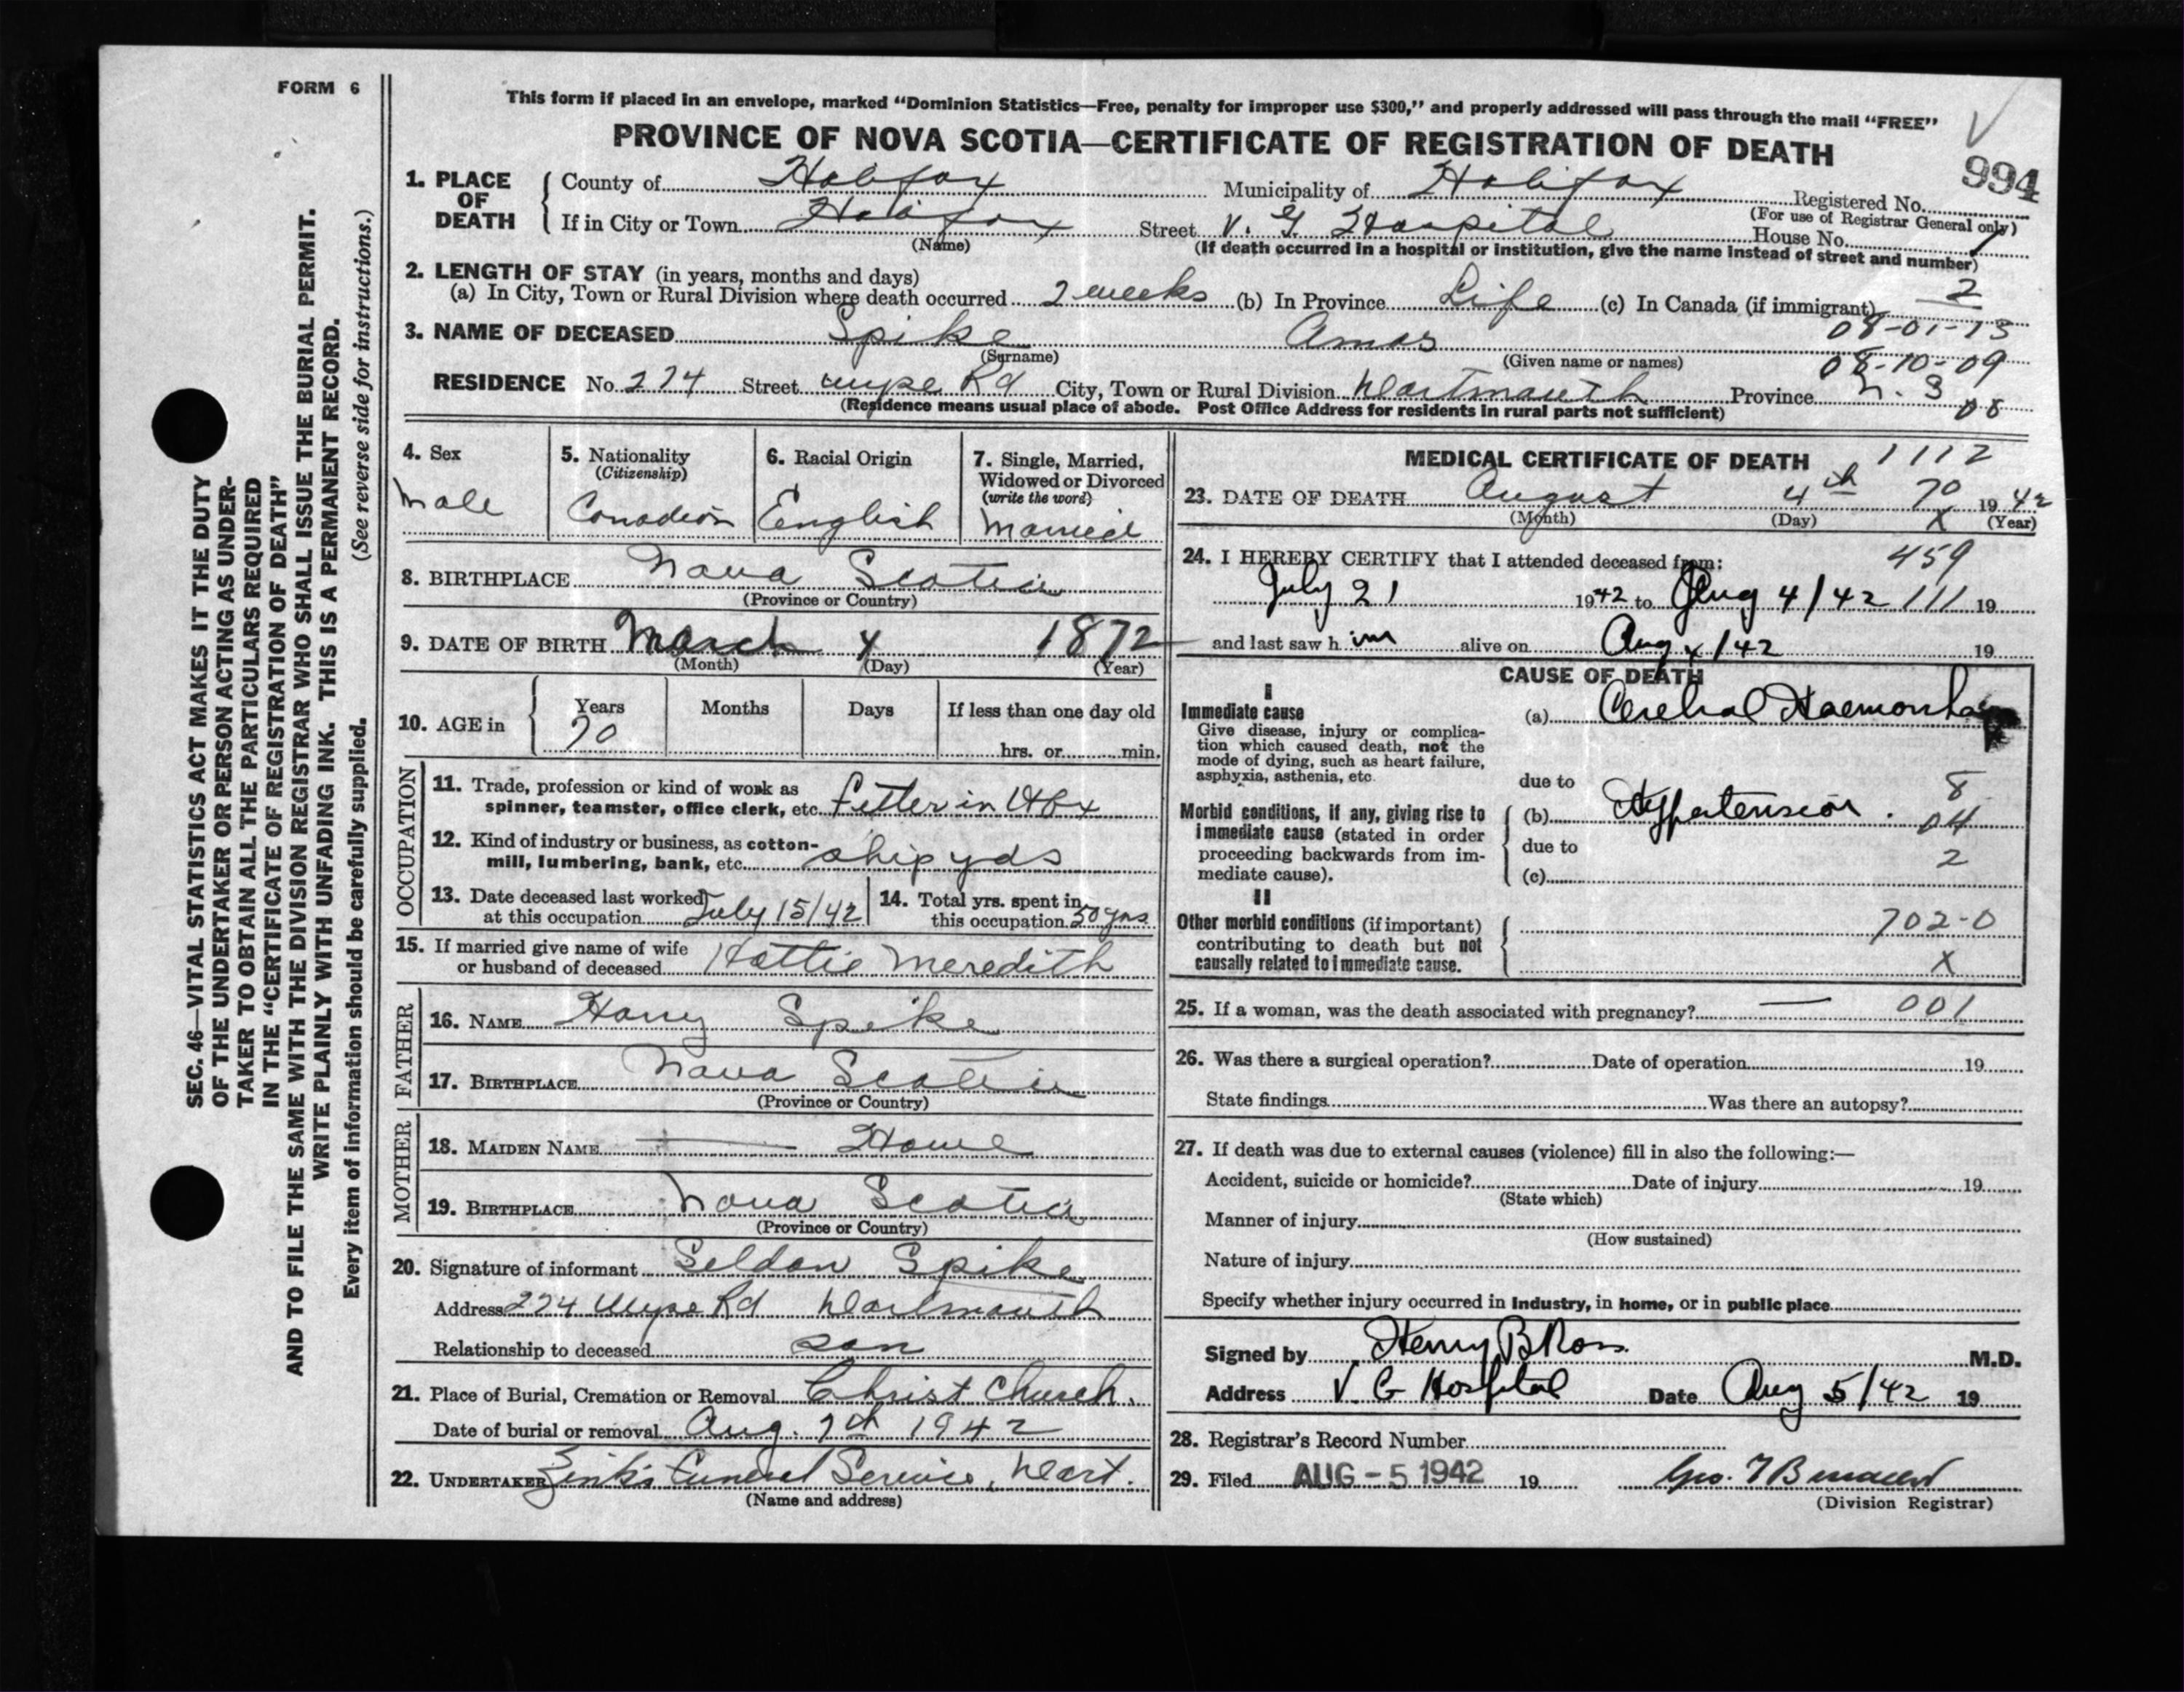 FORM 6
This form if placed in an envelope, marked “Dominion Statistics—Free, penalty for improper use $300,” and properly addressed will pass through the mail “FREE”
PROVINCE OF NOVA SCOTIA—CERTIFICATE OF REGISTRATION OF DEATH
994
1. PLACE OF DEATH
County of Halifax Municipality of Halifax Registered No.
(For use of Registrar General only)
If in City or Town Halifax Street V. G Hospital House No.
(Name) (If death occurred in a hospital or institution, give the name instead of street and number)
2. LENGTH OF STAY (in years, months and days)
(a) In City, Town or Rural Division where death occurred 2 weeks (b) In Province Life (c) In Canada (if immigrant)
2
08-01-13
3. NAME OF DECEASED Spike Amos
(Surname) (Given name or names)
08-10-09
RESIDENCE No. 274 Street Wyse Rd City, Town or Rural Division Dartmouth Province N. S
08
(Residence means usual place of abode. Post Office Address for residents in rural parts not sufficient)
4. Sex
Male
5. Nationality
(Citizenship)
Canadian
6. Racial Origin
English
7. Single, Married,
Widowed or Divorced
(write the word)
Married
8. BIRTHPLACE Nova Scotia
(Province or Country)
9. DATE OF BIRTH March 4 1872
(Month) (Day) (Year)
10. AGE in
Years Months Days If less than one day old
70 hrs. or min.
OCCUPATION
11. Trade, profession or kind of work as
spinner, teamster, office clerk, etc. fitter in Hfx
12. Kind of industry or business, as cotton-
mill, lumbering, bank, etc. ship yds
13. Date deceased last worked
at this occupation July 15/42
14. Total yrs. spent in
this occupation 50 yrs
15. If married give name of wife
or husband of deceased Hattie Meredith
FATHER
16. NAME Harry Spike
17. BIRTHPLACE Nova Scotia
(Province or Country)
MOTHER
18. MAIDEN NAME — Howe
19. BIRTHPLACE Nova Scotia
(Province or Country)
20. Signature of informant Seldon Spike
Address 274 Wyse Rd Dartmouth
Relationship to deceased son
21. Place of Burial, Cremation or Removal Christ Church.
Date of burial or removal Aug. 7th 1942
22. UNDERTAKER Zink's Funeral Service, Dart.
(Name and address)
MEDICAL CERTIFICATE OF DEATH
1112
23. DATE OF DEATH August 4th 70 1942
(Month) (Day) X (Year)
24. I HEREBY CERTIFY that I attended deceased from:
459
July 21 1942 to Aug 4/42 111 19
and last saw h im alive on Aug 4/42 19
CAUSE OF DEATH
I
Immediate cause
Give disease, injury or complica-
tion which caused death, not the
mode of dying, such as heart failure,
asphyxia, asthenia, etc.
(a) Cerebral Haemorrhage
due to
8
Morbid conditions, if any, giving rise to
immediate cause (stated in order
proceeding backwards from im-
mediate cause).
(b) Hypertension. 04
due to
2
(c)
II
Other morbid conditions (if important)
contributing to death but not
causally related to immediate cause.
702-0
X
25. If a woman, was the death associated with pregnancy? — 001
26. Was there a surgical operation? Date of operation 19
State findings Was there an autopsy?
27. If death was due to external causes (violence) fill in also the following:—
Accident, suicide or homicide? Date of injury 19
(State which)
Manner of injury
(How sustained)
Nature of injury
Specify whether injury occurred in industry, in home, or in public place
Signed by Henry B Ross M.D.
Address V. G Hospital Date Aug 5/42 19
28. Registrar's Record Number
29. Filed AUG -5 1942 19 Geo.
(Division Registrar)
SEC. 46—VITAL STATISTICS ACT MAKES IT THE DUTY
OF THE UNDERTAKER OR PERSON ACTING AS UNDER-
TAKER TO OBTAIN ALL THE PARTICULARS REQUIRED
IN THE “CERTIFICATE OF REGISTRATION OF DEATH”
AND TO FILE THE SAME WITH THE DIVISION REGISTRAR WHO SHALL ISSUE THE BURIAL PERMIT.
WRITE PLAINLY WITH UNFADING INK. THIS IS A PERMANENT RECORD.
Every item of information should be carefully supplied. (See reverse side for instructions.)